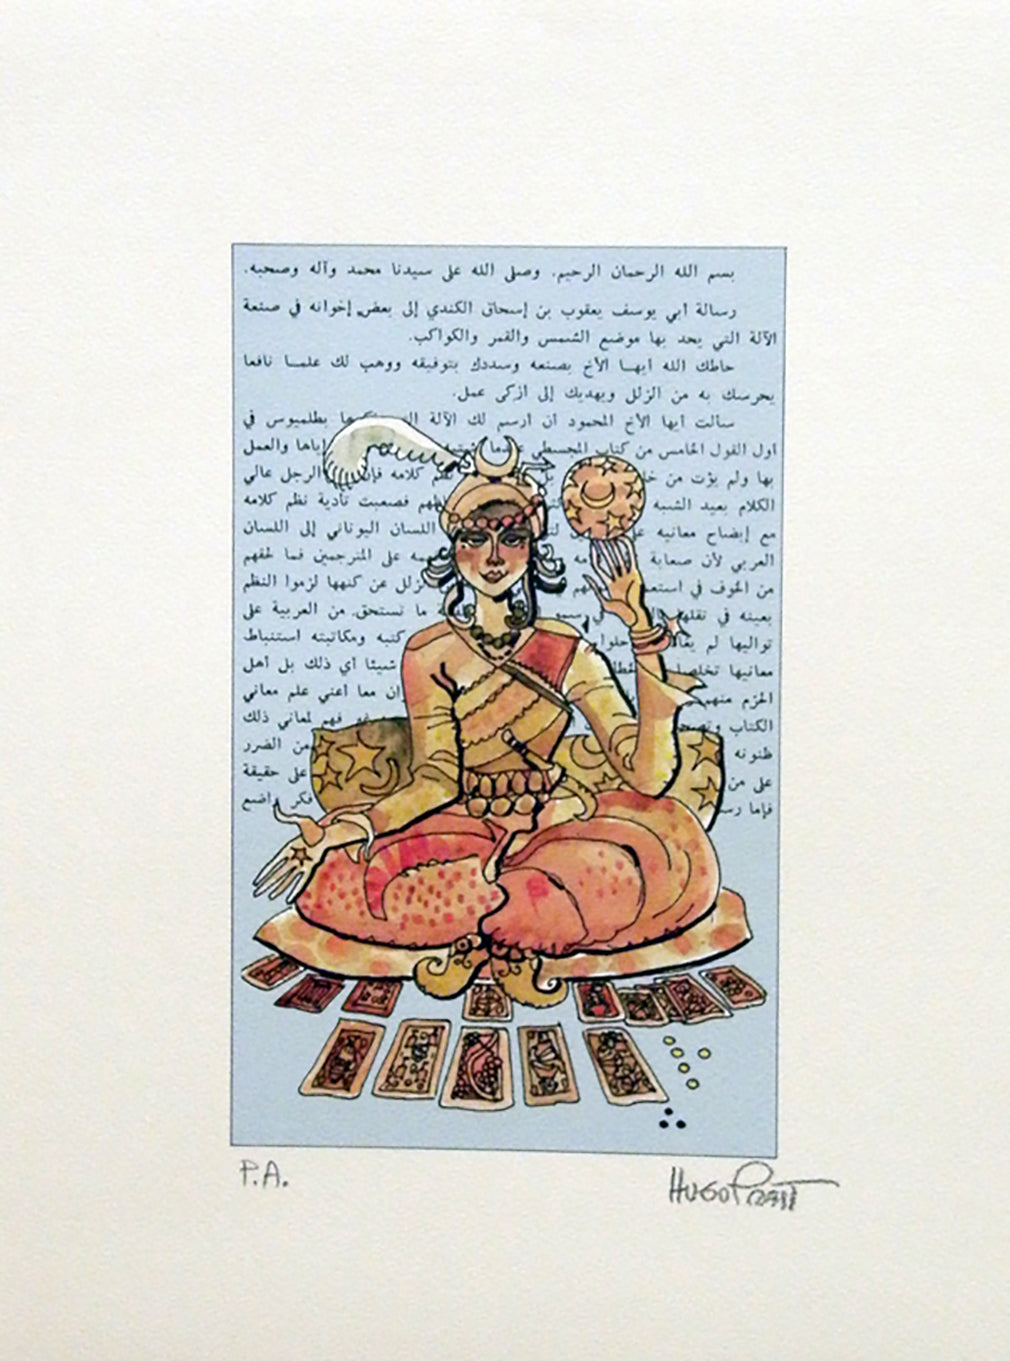 بسم الله الرحمان الرحيم. وصلى الله على سيدنا محمد وآله وصحبه.
رسالة أبي يوسف يعقوب بن إسحاق الكندي إلى بعض إخوانه في صنعة
الآلة التي يحد بها موضع الشمس والقمر والكواكب.
حاطك الله أيها الأخ بصنعه وسددك بتوفيقه ووهب لك علما نافعا
يحرسك به من الزلل ويهديك إلى أزكى عمل.
سألت أيها الأخ المحمود أن أرسم لك الآلة بطلميوس في
أول القول الخامس من كتاب المجسطي إياها والعمل
بها ولم يؤت من نظم كلامه الرجل عالي
الكلام بعيد الشبه فصعبت تأدية نظم كلامه
مع إيضاح معانيه اللسان اليوناني إلى اللسان
العربي لأن صعابة على المترجمين فما لحقهم
من الخوف في الزلل عن كنهها لزموا النظم
بعينه في ما تستحق من العربية على
تواليها لم كتبه ومكاتبته استنباط
معانيها شيئا أي ذلك بل أهل
الحزم منهم معا أعني علم معاني
الكتاب فهم لمعاني ذلك
ظنونه من الضرر
على من على حقيقة
فإما فكر واضع
P.A.
HUGO PRATT